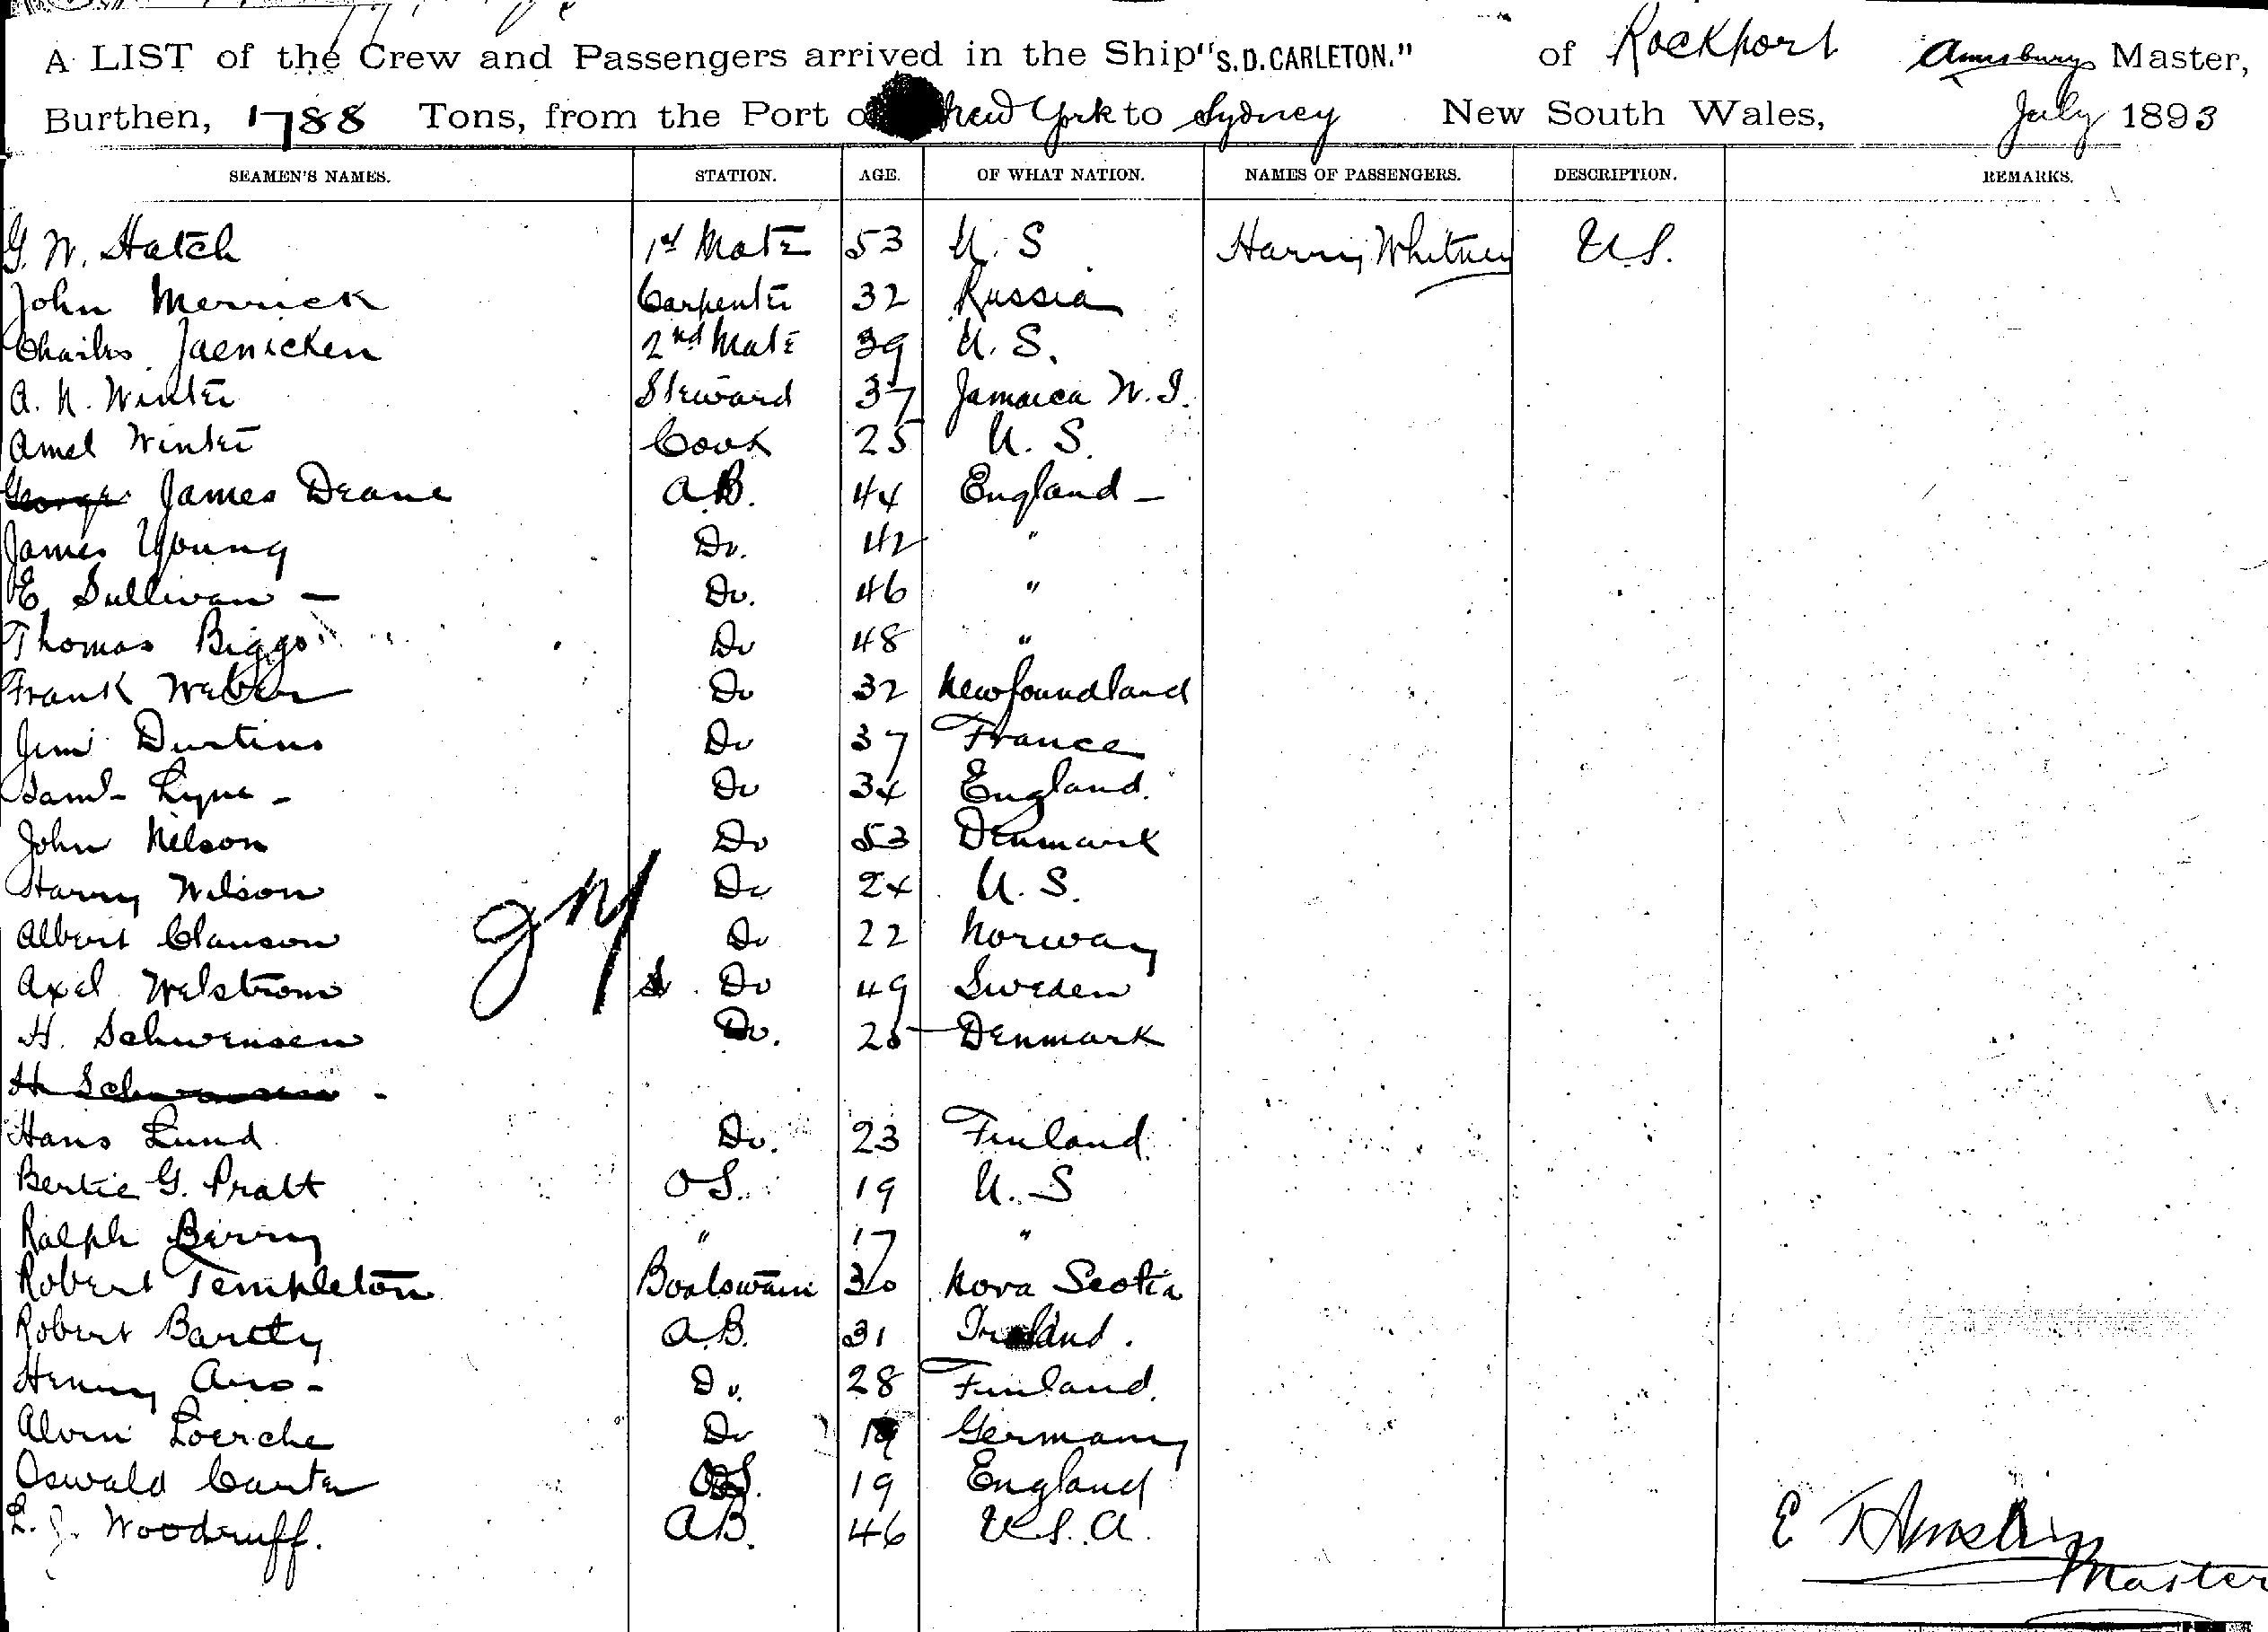 A LIST of the Crew and Passengers arrived in the Ship "S.D. CARLETON." of Rockport Amesbury Master,
Burthen, 1788 Tons, from the Port of New York to Sydney New South Wales, July 1893
SEAMEN'S NAMES. STATION. AGE. OF WHAT NATION. NAMES OF PASSENGERS. DESCRIPTION. REMARKS.
G. W. Hatch 1st Mate 53 U. S Harry Whitney U.S.
John Merrick Carpenter 32 Russia
Charles Jaenicken 2nd Mate 39 U. S.
A. N. Winter Steward 37 Jamaica W. I.
Amel Winter Cook 25 U. S.
George James Deane A.B. 44 England -
James Young Do. 42 "
E. Sullivan - Do. 46 "
Thomas Biggs Do 48 "
Frank Weber Do 32 Newfoundland
Jim Durtins Do 37 France
Saml Lyne - Do 34 England.
John Nelson Do 53 Denmark
Harry Wilson Do 24 U. S.
Albert Clauson Do 22 Norway
Axel Welstrom Do 49 Sweden
H. Schwensen Do. 25 Denmark
H Schwensen -
Hans Lund Do. 23 Finland.
Bertie G. Pratt O S. 19 U. S
Ralph Berry " 17 "
Robert Templeton Boatswain 30 Nova Scotia
Robert Bartty A.B. 31 Ireland.
Henry Do. 28 Finland.
Alvin Loerche Do 19 Germany
Oswald Carter O.S. 19 England
L. J. Woodruff. A.B. 46 U.S.A.
E Master